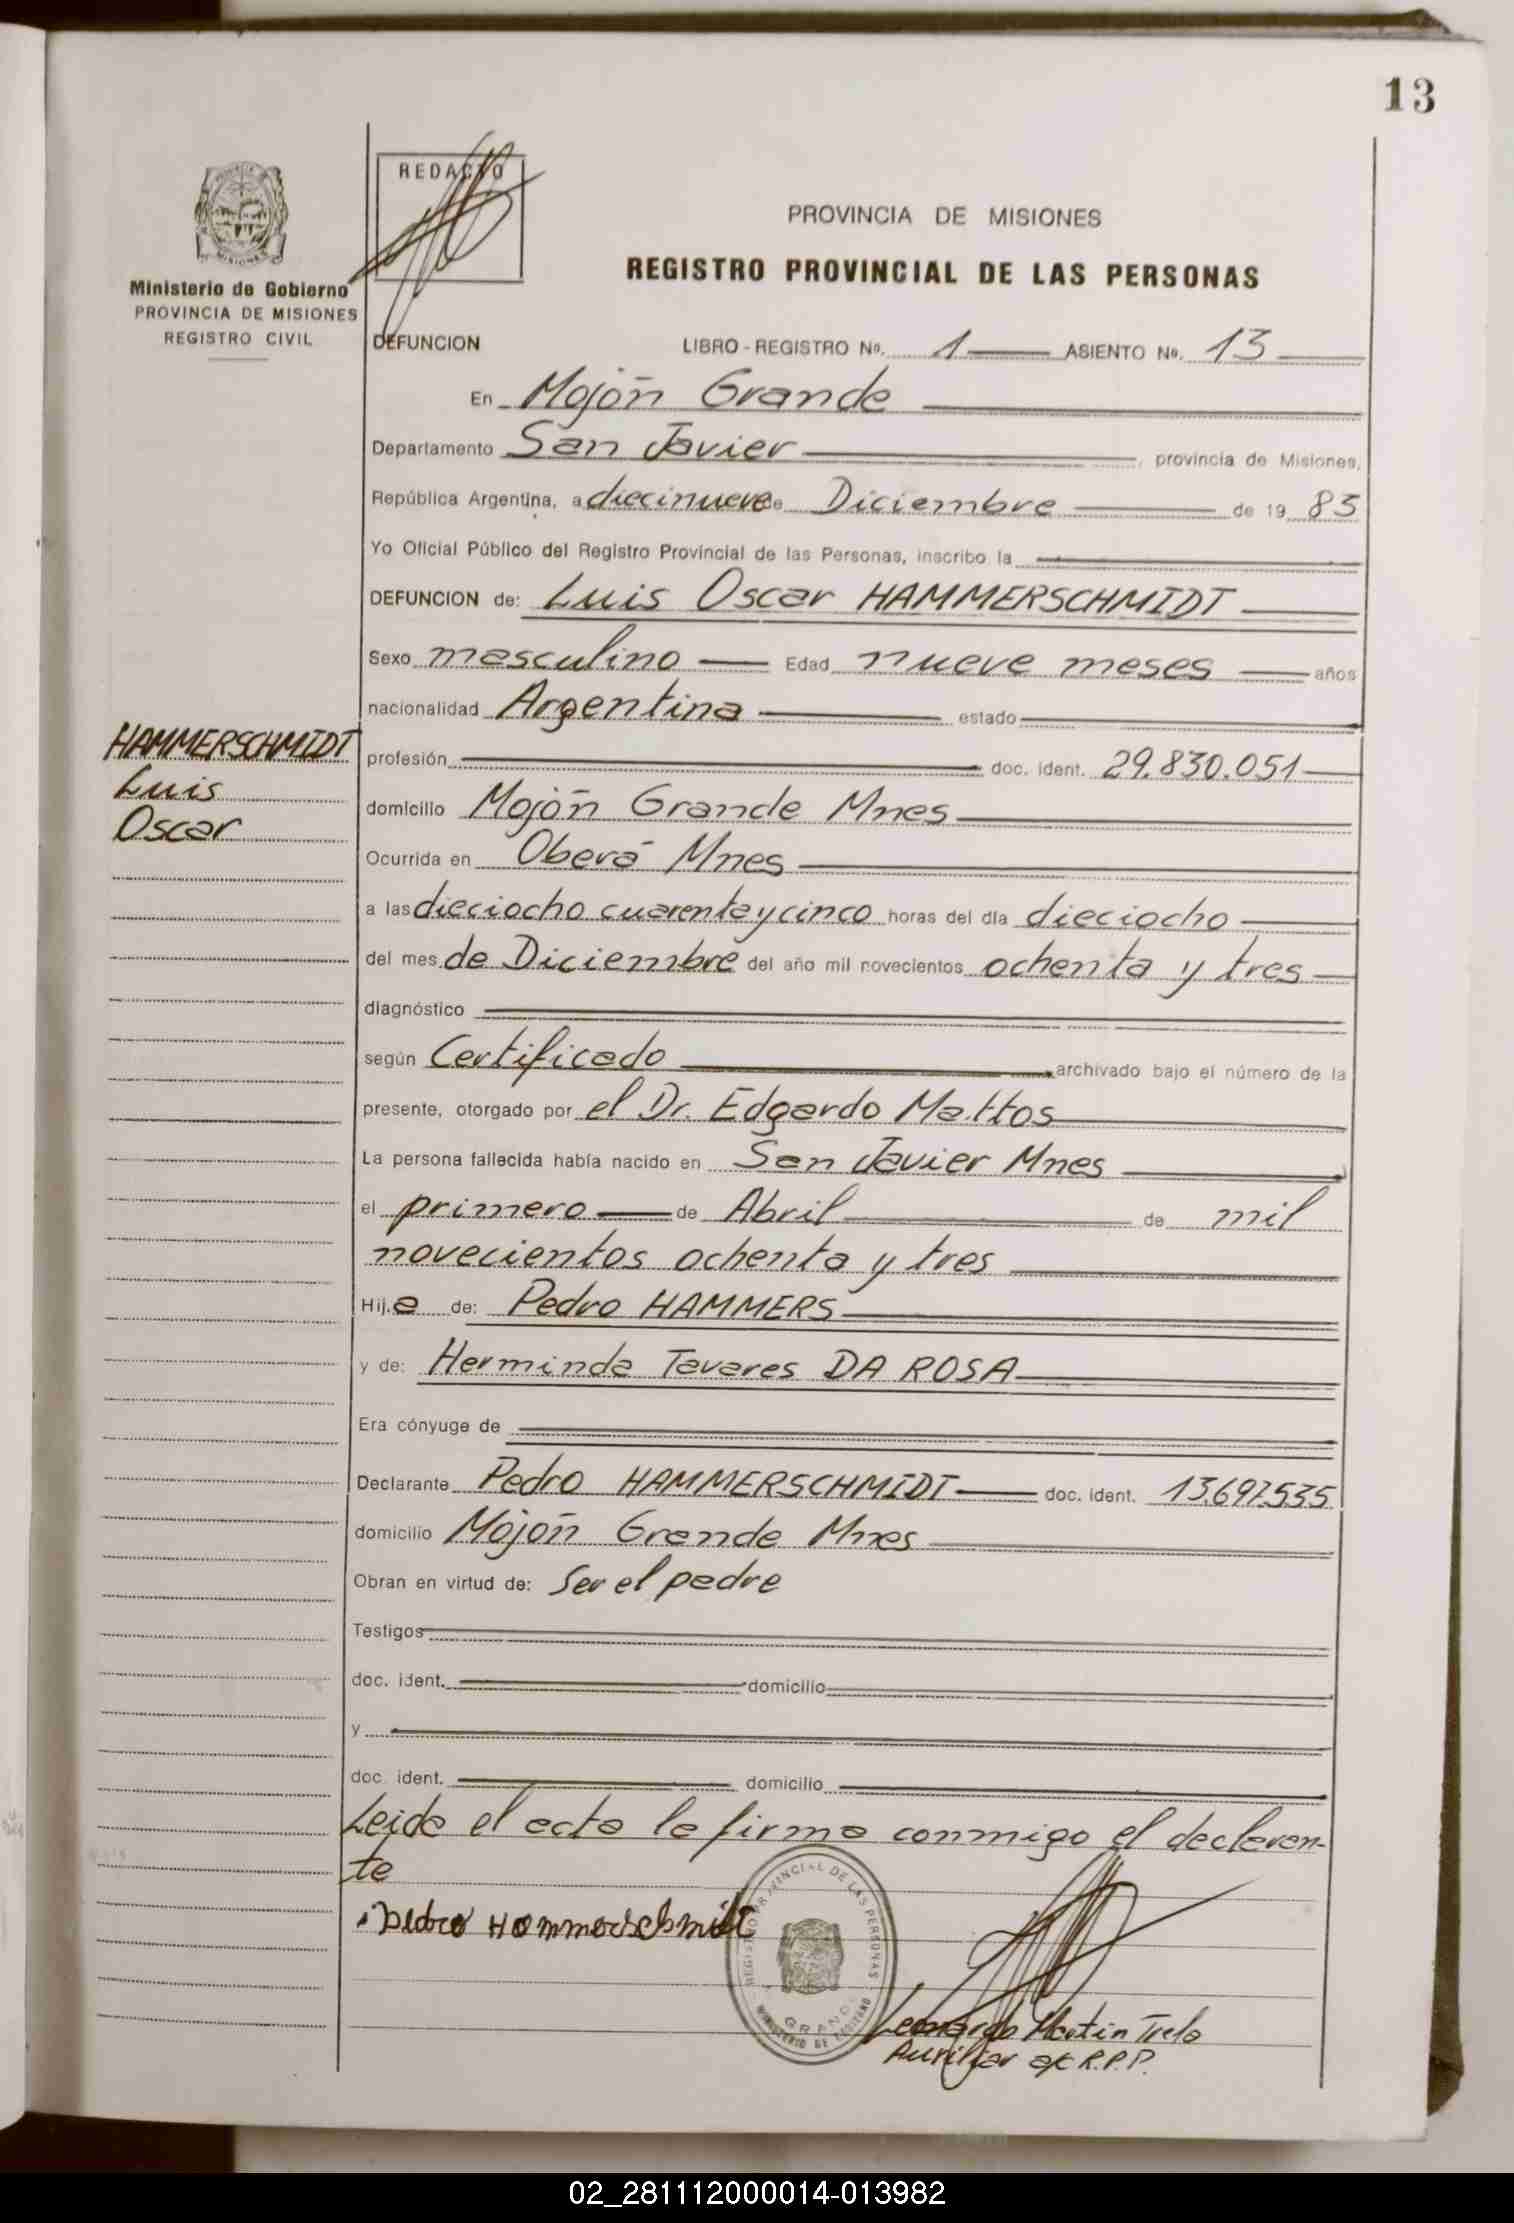 13
REDACTO
PROVINCIA DE MISIONES
REGISTRO PROVINCIAL DE LAS PERSONAS
Ministerio de Gobierno
PROVINCIA DE MISIONES
REGISTRO CIVIL
DEFUNCION LIBRO - REGISTRO Nº. 1 ASIENTO Nº. 13
En Mojón Grande
Departamento San Javier, provincia de Misiones,
República Argentina, a diecinueve de Diciembre de 19 83
Yo Oficial Público del Registro Provincial de las Personas, inscribo la
DEFUNCION de: Luis Oscar HAMMERSCHMIDT
Sexo masculino Edad nueve meses años
nacionalidad Argentina estado
HAMMERSCHMIDT
Luis
Oscar
profesión doc. ident. 29.830.051
domicilio Mojón Grande Mnes
Ocurrida en Oberá Mnes
a las dieciocho cuarenta y cinco horas del día dieciocho
del mes de Diciembre del año mil novecientos ochenta y tres
diagnóstico
según Certificado archivado bajo el número de la
presente, otorgado por el Dr. Edgardo Mattos
La persona fallecida había nacido en San Javier Mnes
el primero de Abril de mil
novecientos ochenta y tres
Hij.o de: Pedro HAMMERS
y de: Herminda Tavares DA ROSA
Era cónyuge de
Declarante Pedro HAMMERSCHMIDT doc. ident. 13.697.535
domicilio Mojón Grande Mnes
Obran en virtud de: Ser el padre
Testigos
doc. ident. domicilio
y
doc. ident. domicilio
Leida el acta la firma conmigo el declaran-
te
Pedro Hammerschmidt
REGISTRO PROVINCIAL DE LAS PERSONAS
MINISTERIO DE GOBIERNO
Leonardo Martin
Auxiliar R.P.P.
02_281112000014-013982